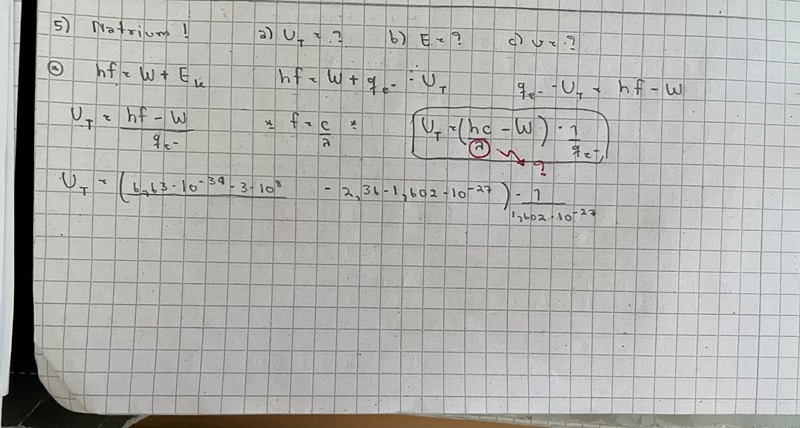 5) Natrium! a) U_T = ? b) E = ? c) v = ?
a) hf = W + E_k hf = W + q_e- · U_T q_e- · U_T = hf - W
U_T = (hf - W)/q_e- * f = c/λ * U_T = (hc/λ - W) · 1/q_e-
?
U_T = (6,63 · 10^-34 · 3 · 10^8 - 2,36 · 1,602 · 10^-27) · 1/(1,602 · 10^-27)